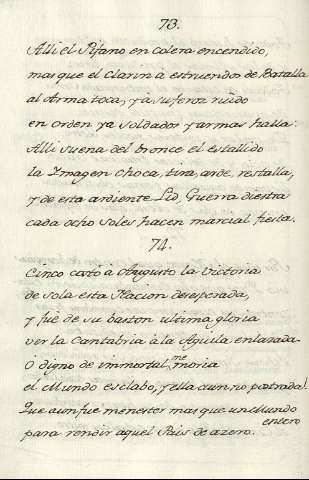 73.
Alli el Pifano en colera encendido,
mas que el Clarin à estruendos de Batalla
al Arma toca, y à su feroz ruido
en orden ya soldados y armas halla:
Alli suena del bronce el estallido
la Imagen choca, tira, arde, restalla,
y de esta ardiente Lid, Guerra diestra
cada ocho Soles hacen marcial fiesta.
74.
Cinco cató à Augusto la victoria
de sola esta Nacion desesperada,
y fué de su baston ultima gloria
ver la Cantabria à la Aguila enlazada
O digno de immortal memoria
el Mundo esclabo, y ella aun no postrada!
Que aun fue menester mas que un Mundo entero
para rendir aquel Pais de azero.